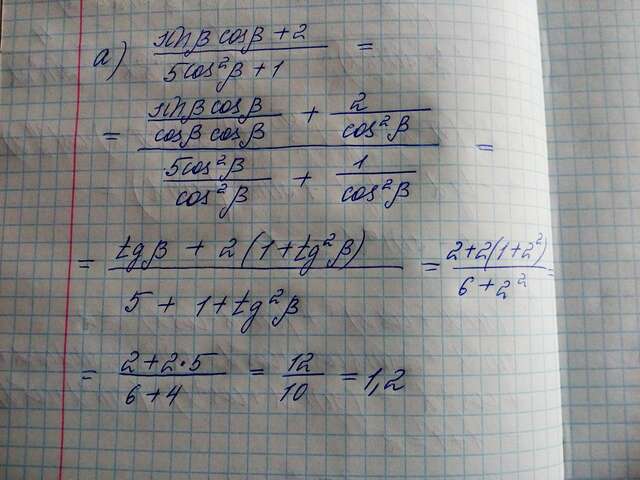 а) (sinβ cosβ + 2) / (5cos²β + 1) =
= (sinβ cosβ / cosβ cosβ + 2 / cos²β) / (5cos²β / cos²β + 1 / cos²β) =
= (tgβ + 2(1+tg²β)) / (5 + 1+tg²β) = (2+2(1+2²)) / (6+2²) =
= (2+2·5) / (6+4) = 12 / 10 = 1,2